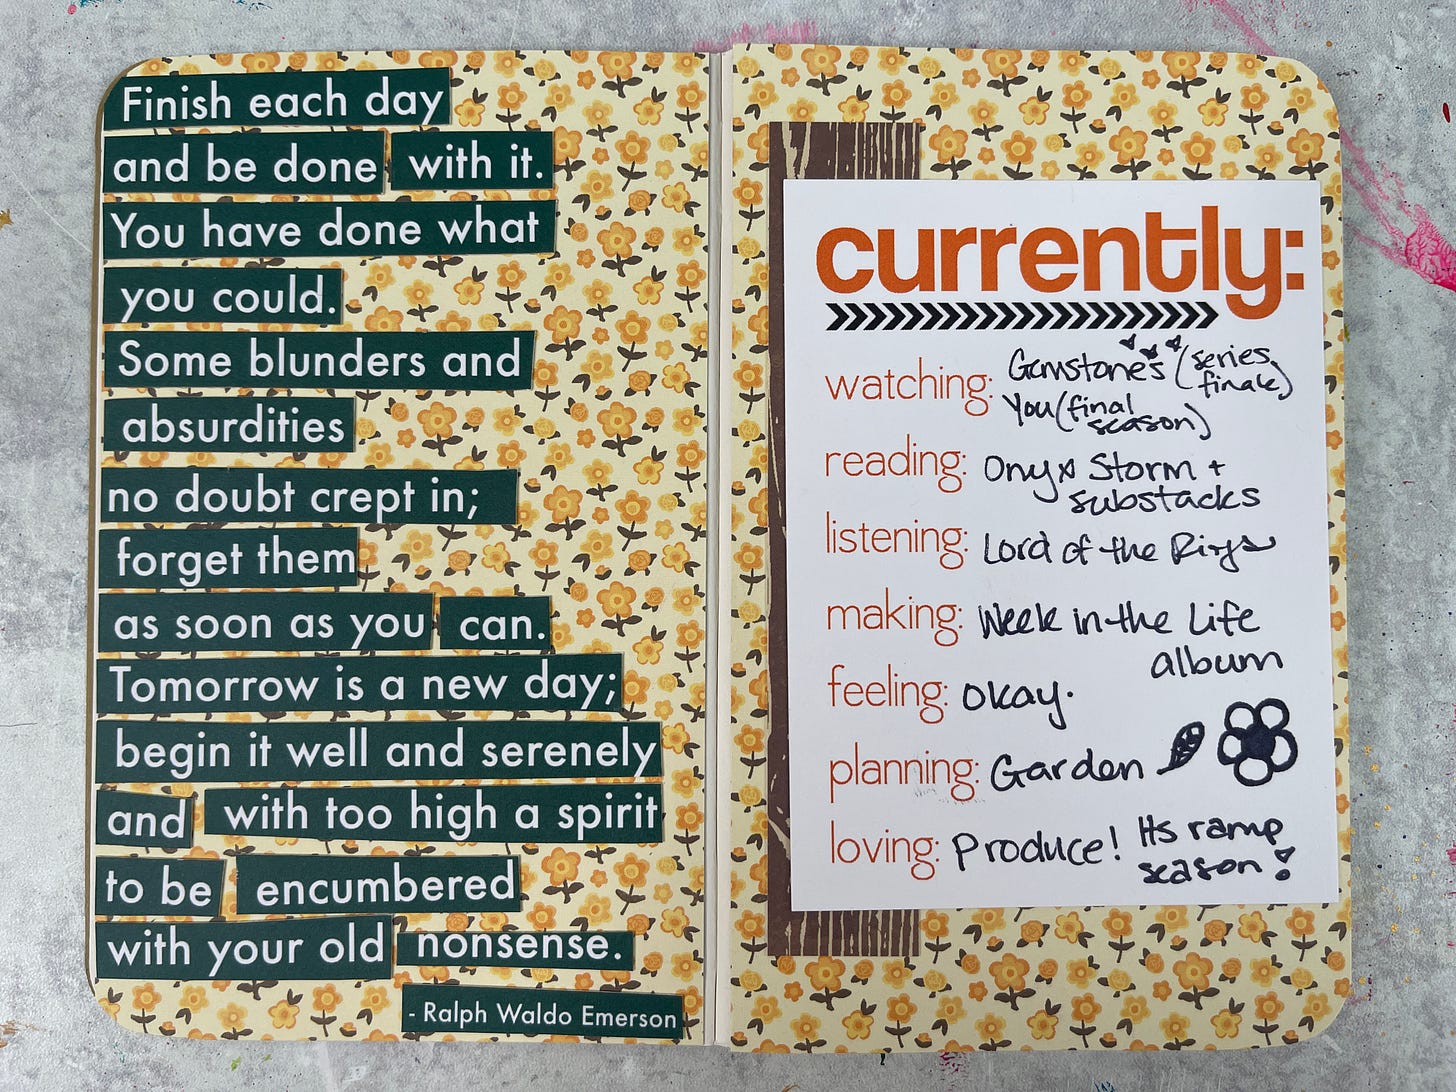 Finish each day
and be done with it.
You have done what
you could.
Some blunders and
absurdities
no doubt crept in;
forget them
as soon as you can.
Tomorrow is a new day;
begin it well and serenely
and with too high a spirit
to be encumbered
with your old nonsense.
- Ralph Waldo Emerson
currently:
watching: Gemstones (series finale)
You (final season)
reading: Onyx Storm +
substacks
listening: Lord of the Rings
making: Week in the Life
album
feeling: okay.
planning: Garden
loving: Produce! Its ramp
season!